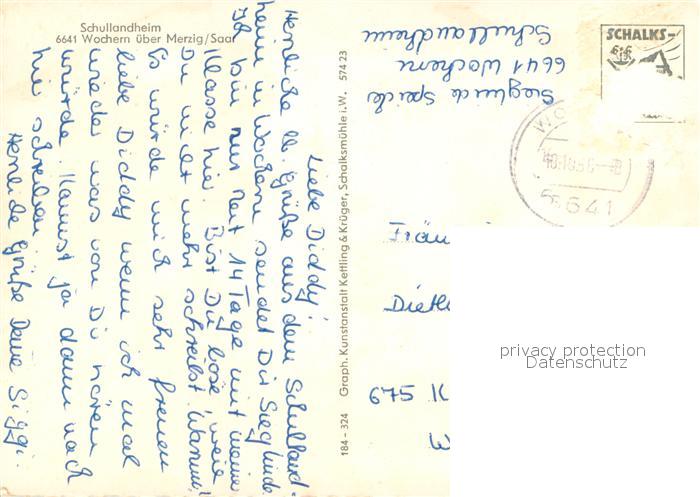 Schullandheim
6641 Wochern über Merzig/Saar
Liebe Diddy!
Herzliche lb. Grüße aus dem Schulland-
heim in Wochern sendet Dir Sieglinde.
Ich bin nur seit 14 Tage mit meine
Klasse hier. Bist Du böse, weil
Du nicht mehr schreibst. Warum!
Es würde mich sehr freuen
liebe Diddy wenn ich mal
wieder was von Dir hören
würde. Kannst ja dann nach
hier schreiben
Herzliche Grüße Deine Siggi.
184-324 Graph. Kunstanstalt Kettling & Krüger, Schalksmühle i.W. 574 23
Sieglinde
6641 Wochern
Schullandheim
SCHALKS-
WO
6641
Fräu
Dietl
675 K
W
privacy protection
Datenschutz